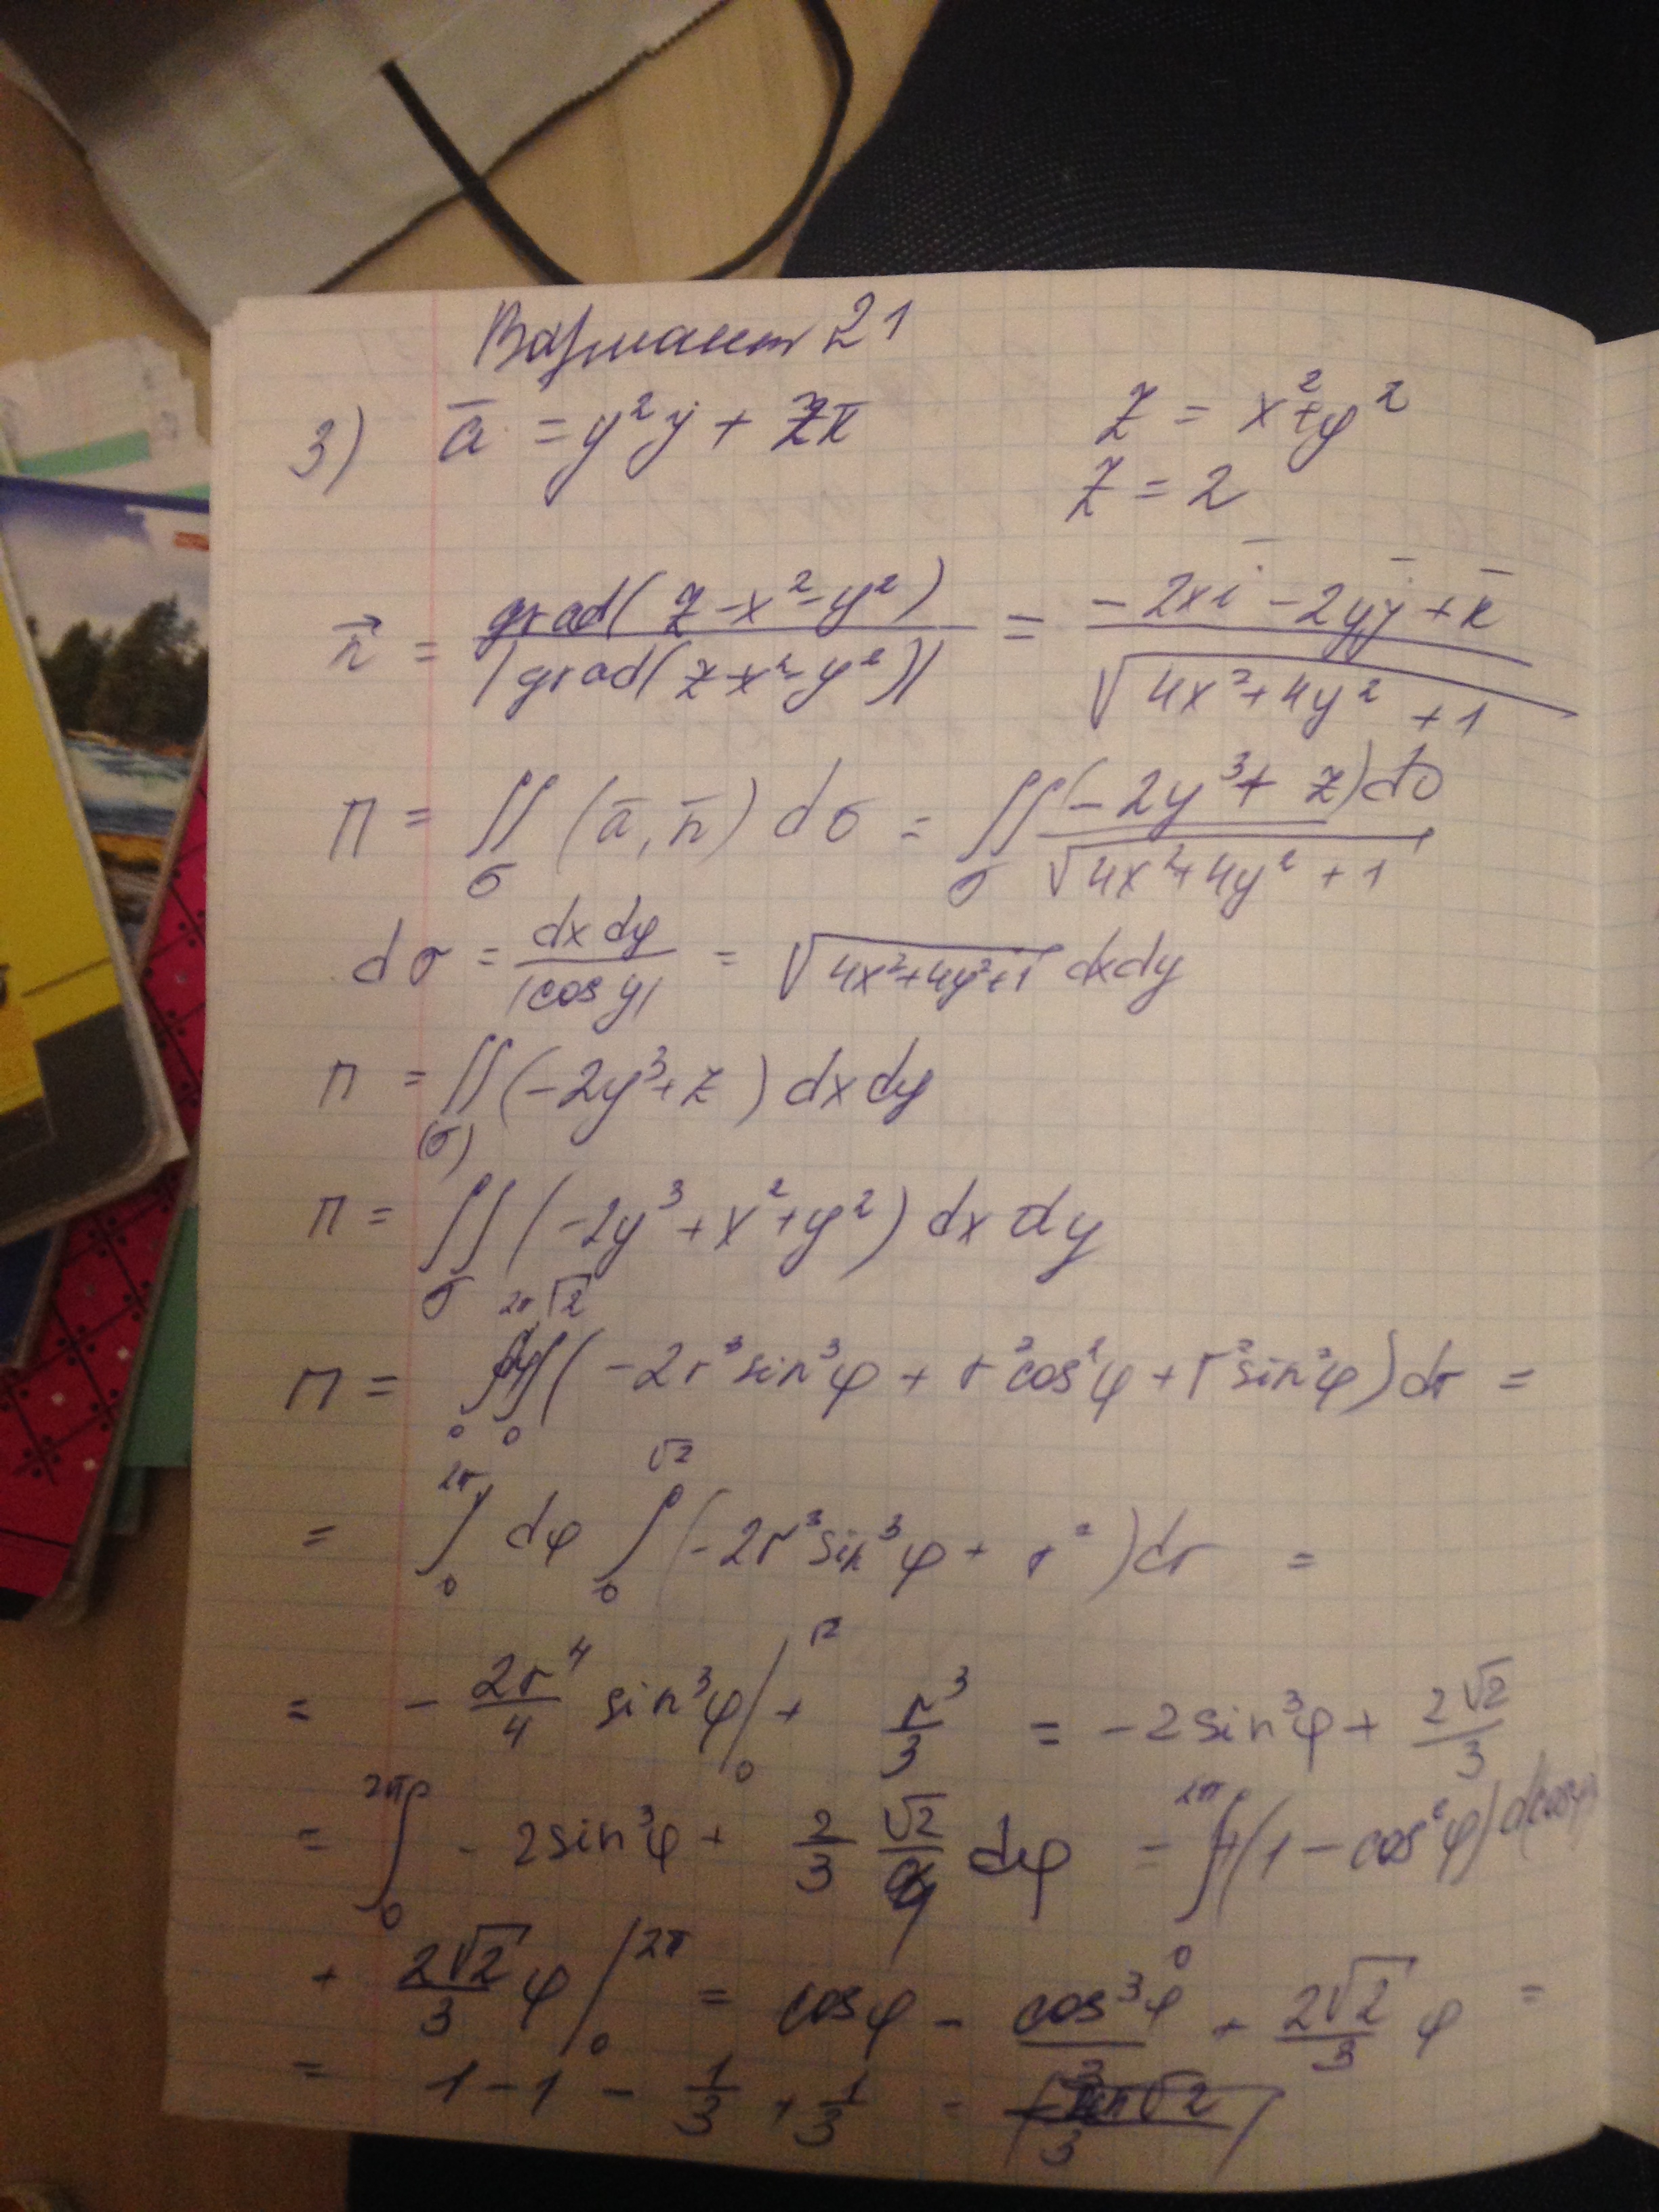 Вариант 21
3) a̅ = y²j + zk̅    z = x²+y²
z = 2
n⃗ = grad(z-x²-y²) / |grad(z-x²-y²)| = (-2xi̅ - 2yj̅ + k̅) / √(4x²+4y²+1)
П = ∬_σ (a̅, n̅) dσ = ∬_σ (-2y³+z)dσ / √(4x²+4y²+1)
dσ = dxdy / |cos γ| = √(4x²+4y²+1) dxdy
П = ∬_(σ) (-2y³+z) dxdy
П = ∬_σ (-2y³+x²+y²) dx dy
П = ∫₀^2π ∫₀^√2 (-2r³sin³φ + r²cos²φ + r²sin²φ)dr =
= ∫₀^2π dφ ∫₀^√2 (-2r³sin³φ + r²)dr =
= - 2r⁴/4 sin³φ |₀^√2 + r³/3 = -2sin³φ + 2√2/3
= ∫₀^2π -2sin³φ + 2/3 √2 dφ = ∫₀^2π (1-cos²φ)d(cosφ)
+ 2√2/3 φ |₀^2π = cosφ - cos³φ/3 + 2√2/3 φ =
= 1-1 - 1/3 + 1/3 =